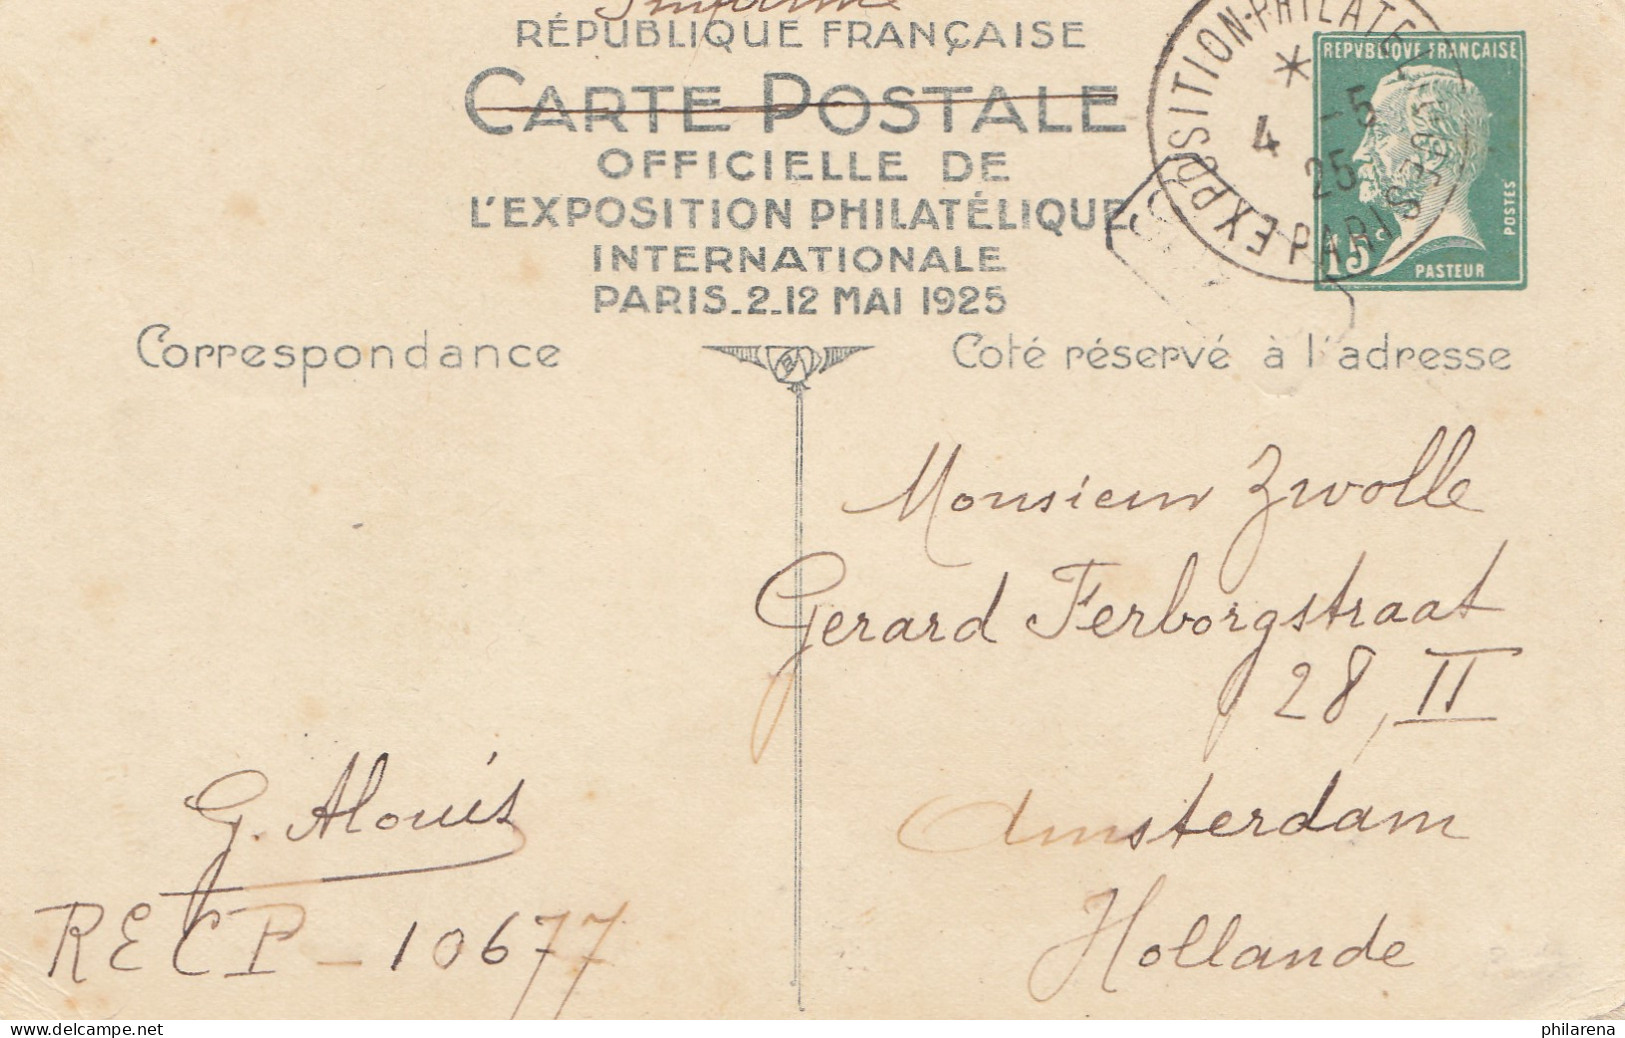 Imprimé
RÉPUBLIQUE FRANÇAISE
CARTE POSTALE
OFFICIELLE DE
L'EXPOSITION PHILATÉLIQUE
INTERNATIONALE
PARIS_2_12 MAI 1925
EXPOSITION·PHILATELIQUE
4 -5
25
PARIS
REPVBLIQVE FRANÇAISE
POSTES
15c
PASTEUR
Correspondance
Coté réservé à l'adresse
Monsieur Zwolle
Gerard Terborgstraat
28, II
Amsterdam
Hollande
G. Alouis
RECP - 10677
www.delcampe.net
philarena